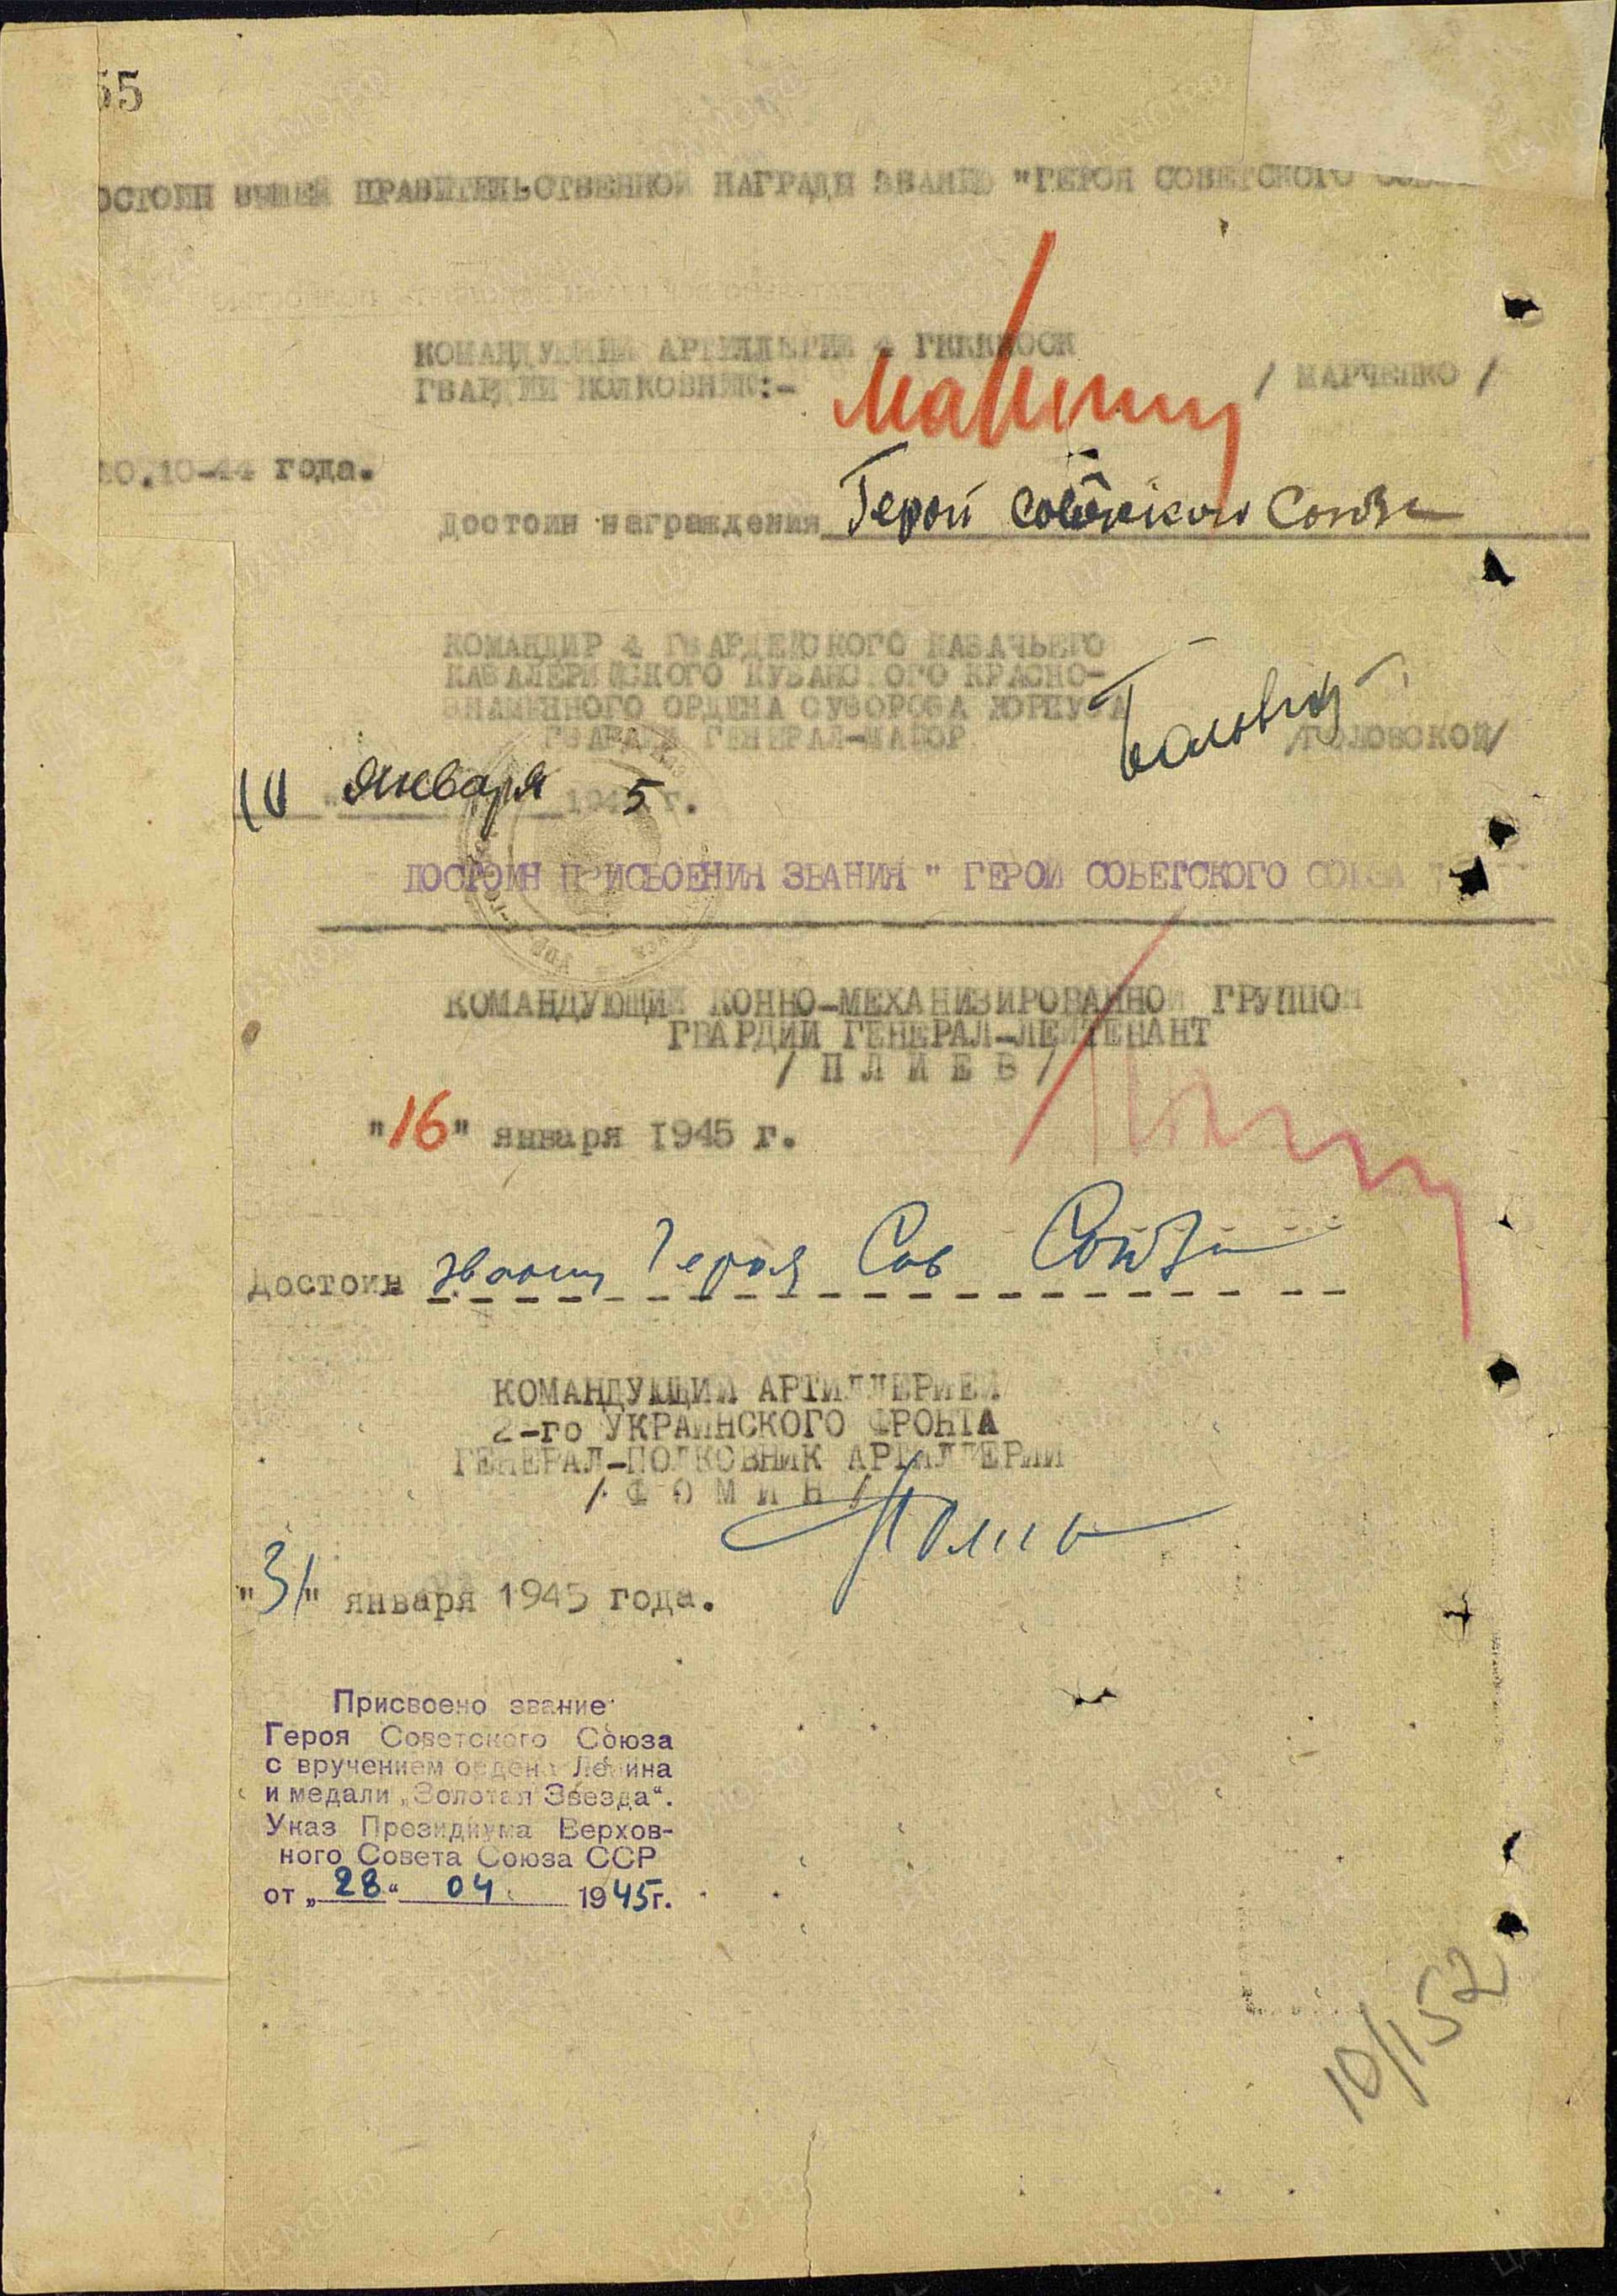 55
ОСТОИН ВЫШЕЙ ПРАВИТЕЛЬСТВЕННОЙ НАГРАДЫ ЗВАНИЮ "ГЕРОЯ СОВЕТСКОГО
КОМАНДУЮЩИЙ АРТИЛЛЕРИИ 4 ГКККОСК
ГВАРДИИ ПОЛКОВНИК:- / МАРЧЕНКО /
10-44 года.
Достоин награждения Герой Советского Союза
КОМАНДИР 4 ГВАРДЕЙСКОГО КАЗАЧЬЕГО
КАВАЛЕРИЙСКОГО КУБАНСКОГО КРАСНО-
ЗНАМЕННОГО ОРДЕНА СУВОРОВА КОРПУСА
ГВАРДИИ ГЕНЕРАЛ-МАЙОР /ГОЛОВСКОЙ/
10 " января 1945 г.
ДОСТОИН ПРИСВОЕНИЯ ЗВАНИЯ " ГЕРОЙ СОВЕТСКОГО СОЮЗА
КОМАНДУЮЩИЙ КОННО-МЕХАНИЗИРОВАННОЙ ГРУППОЙ
ГВАРДИИ ГЕНЕРАЛ-ЛЕЙТЕНАНТ
/ П Л И Е В /
"16" января 1945 г.
Достоин звания Героя Сов Союза
КОМАНДУЮЩИЙ АРТИЛЛЕРИЕЙ
2-го УКРАИНСКОГО ФРОНТА
ГЕНЕРАЛ-ПОЛКОВНИК АРТИЛЛЕРИИ
/ Ф О М И Н /
"31" января 1945 года.
Присвоено звание
Героя Советского Союза
с вручением ордена Ленина
и медали „Золотая Звезда“.
Указ Президиума Верхов-
ного Совета Союза ССР
от „28“ 04 1945г.
10/152